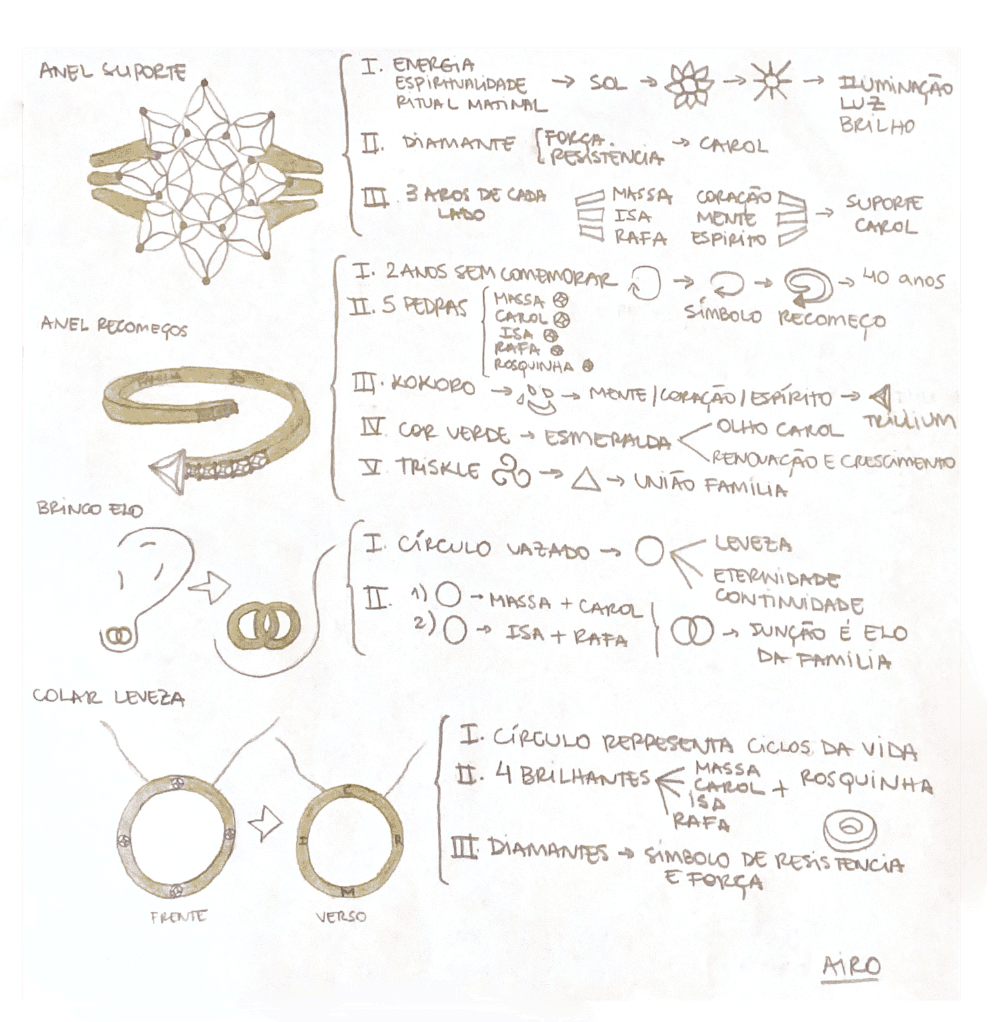 ANEL SUPORTE
I. ENERGIA
ESPIRITUALIDADE
RITUAL MATINAL
→ SOL → → → ILUMINAÇÃO
LUZ
BRILHO
II. DIAMANTE { FORÇA.
RESISTENCIA → CAROL
III. 3 AROS DE CADA
LADO
MASSA CORAÇÃO
ISA MENTE
RAFA ESPIRITO
→ SUPORTE
CAROL
ANEL RECOMEÇOS
I. 2 ANOS SEM COMEMORAR → → → 40 anos
SÍMBOLO RECOMEÇO
II. 5 PEDRAS
MASSA
CAROL
ISA
RAFA
ROSQUINHA
III. KOKORO → → MENTE/CORAÇÃO/ESPÍRITO →
TRILLIUM
IV. COR VERDE → ESMERALDA
OLHO CAROL
RENOVAÇÃO E CRESCIMENTO
V. TRISKLE → △ → UNIÃO FAMÍLIA
BRINCO ELO
I. CÍRCULO VAZADO → ◯
LEVEZA
ETERNIDADE
CONTINUIDADE
II. 1) ◯ → MASSA + CAROL
2) ◯ → ISA + RAFA
→ JUNÇÃO É ELO
DA FAMÍLIA
COLAR LEVEZA
I. CÍRCULO REPRESENTA CICLOS DA VIDA
II. 4 BRILHANTES
MASSA
CAROL + ROSQUINHA
ISA
RAFA
III. DIAMANTES → SÍMBOLO DE RESISTENCIA
E FORÇA
C
I R
M
FRENTE VERSO
AIRO